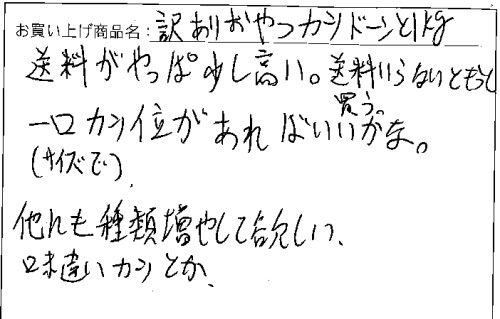 お買い上げ商品名：訳ありおやつカンドーンと1kg
送料がやっぱ少し高い。送料いらないともう少し
買う。
一口カン位があればいいかな。
(サイズで)
他にも種類増やして欲しい、
味違いカンとか、